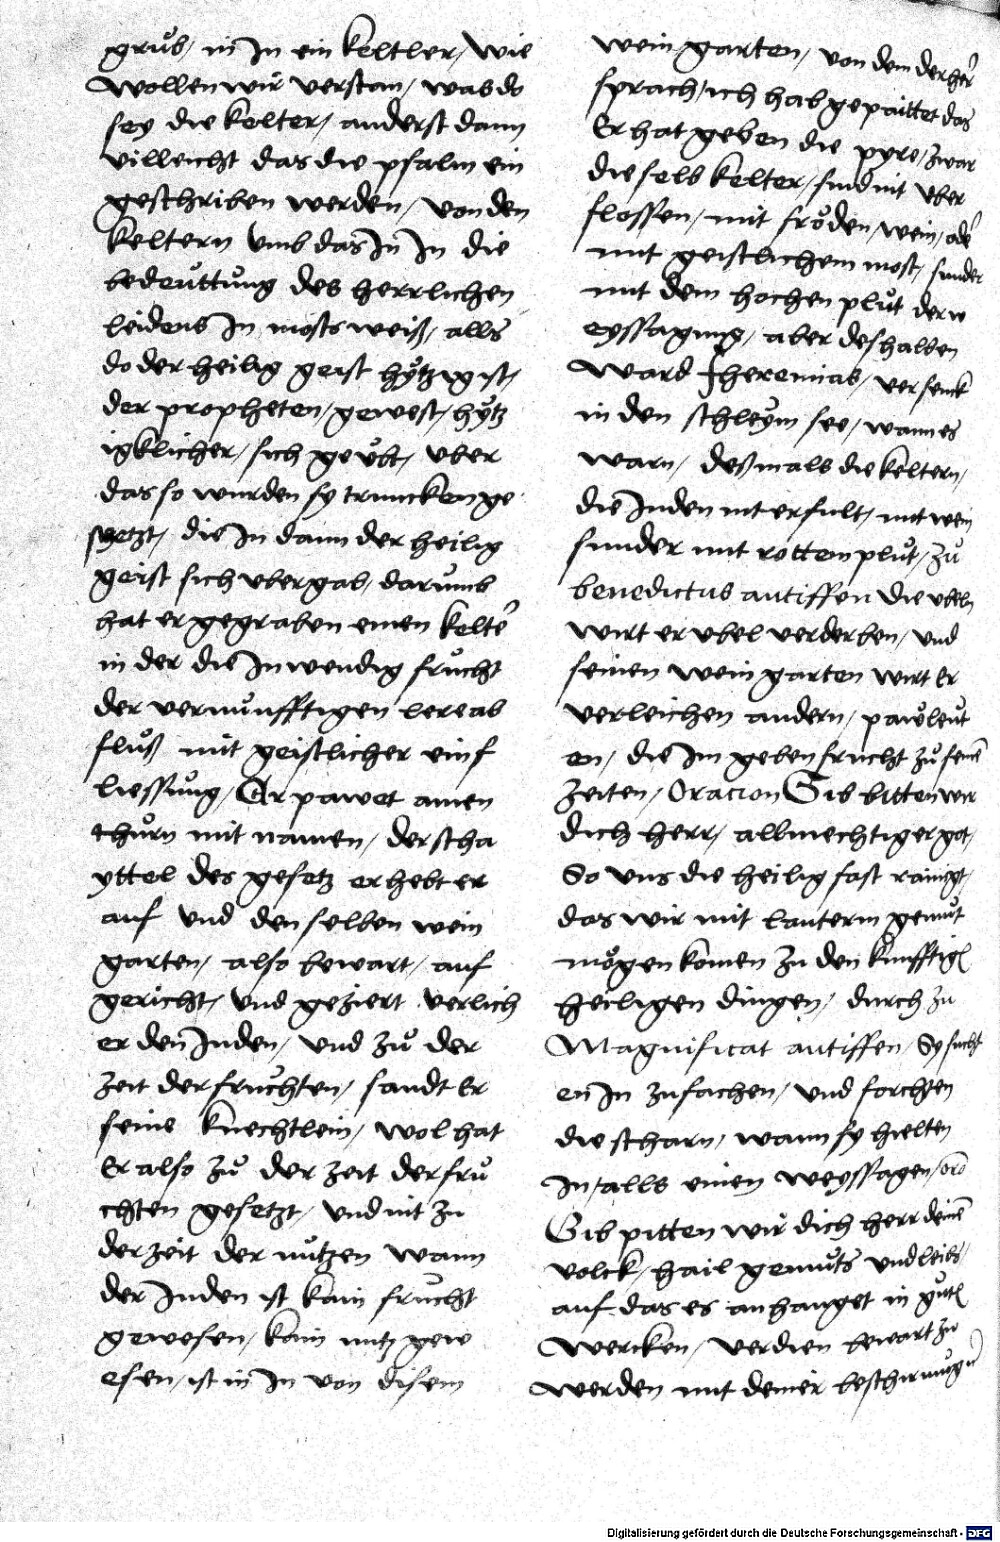 grůb, in in ein keltler, wie
wollen wir verstan, was do
sey die kelter, anderst dann
villeicht das die psalm ein
geschriben werden, von den
keltern umb das In In die
bedeuttung des herrlichen
leidens In mosts weiß, alls
do der heilig geist hytzig ist,
der propheten, gewest, hytz
igklicher, sich geubt, uber
das so wurden sy trunncken ge
schetzt, die In dann der heilig
geist sich ubergab, darumb
hat er gegraben einen kelte
in der die Inwendig frucht
der vernunfftigen lere ab
fluß mit geistlicher einf
liessung, Er pawet ainen
thurn mit namen, der scha
yttel des gesetz erhebt er
auf und den selben wein
garten, also bewart, auf
gericht, und geziert verlich
er den Juden, und zů der
zeit der fruchten, sandt Er
seine knechtlein, wol hat
Er also zů der zeit der fru
chten gesetzt, und nit zu
der zeit der nutzen wann
der Juden ist kain frucht
gewesen, kain nutz gew
esen, ist in In von disem
wein garten, von dem der her
sprach, ich hab gepaittet das
Er hat geben die pyre, zwar
die selb kelter, sind nit uber
flossen, mit fröden, wein, ode
mit geistlichem most, sunder
mit dem hochen plůt der w
eyssagung, aber deshalben
ward Jheremias, versenck
in den schleym see, wann es
warn, deßmals die keltern,
die Juden nit erfult, mit wein
sunder mit rottem plůt, zů
benedictus antiffen die ubeln
wirt er ubel verderben, und
seinen wein garten wirt Er
verleichen andern, pawleut
en, die Im geben frucht zů sene
zeiten, Oracion Gib bitten wir
dich herr, allmechtiger got,
So uns die heilig fast rainigt,
das wir mit lauterm gemut
mögen komen zu den kunfftig
heiligen dingen, durch zu
Magnificat antiffen, Sy sucht
en In zufachen, und forchten
die scharn, wann sy hielten
In, alls einen weyssagen, oro
Gib pitten wir dich herr deine
volck, hail gemuts und leibs,
auf das es anhanget in gut
wercken, verdien bewart zu
werden mit deiner beschirmug